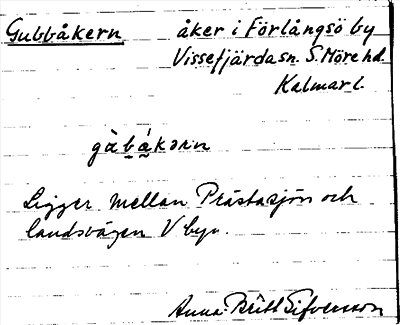 Gubbåkern åker i Förlångsö by
Vissefjärda sn. S. Möre hd.
Kalmar l.
gàbákərn
Ligger mellan Prästasjön och
landsvägen V byn.
Anna-Britt Sifversson